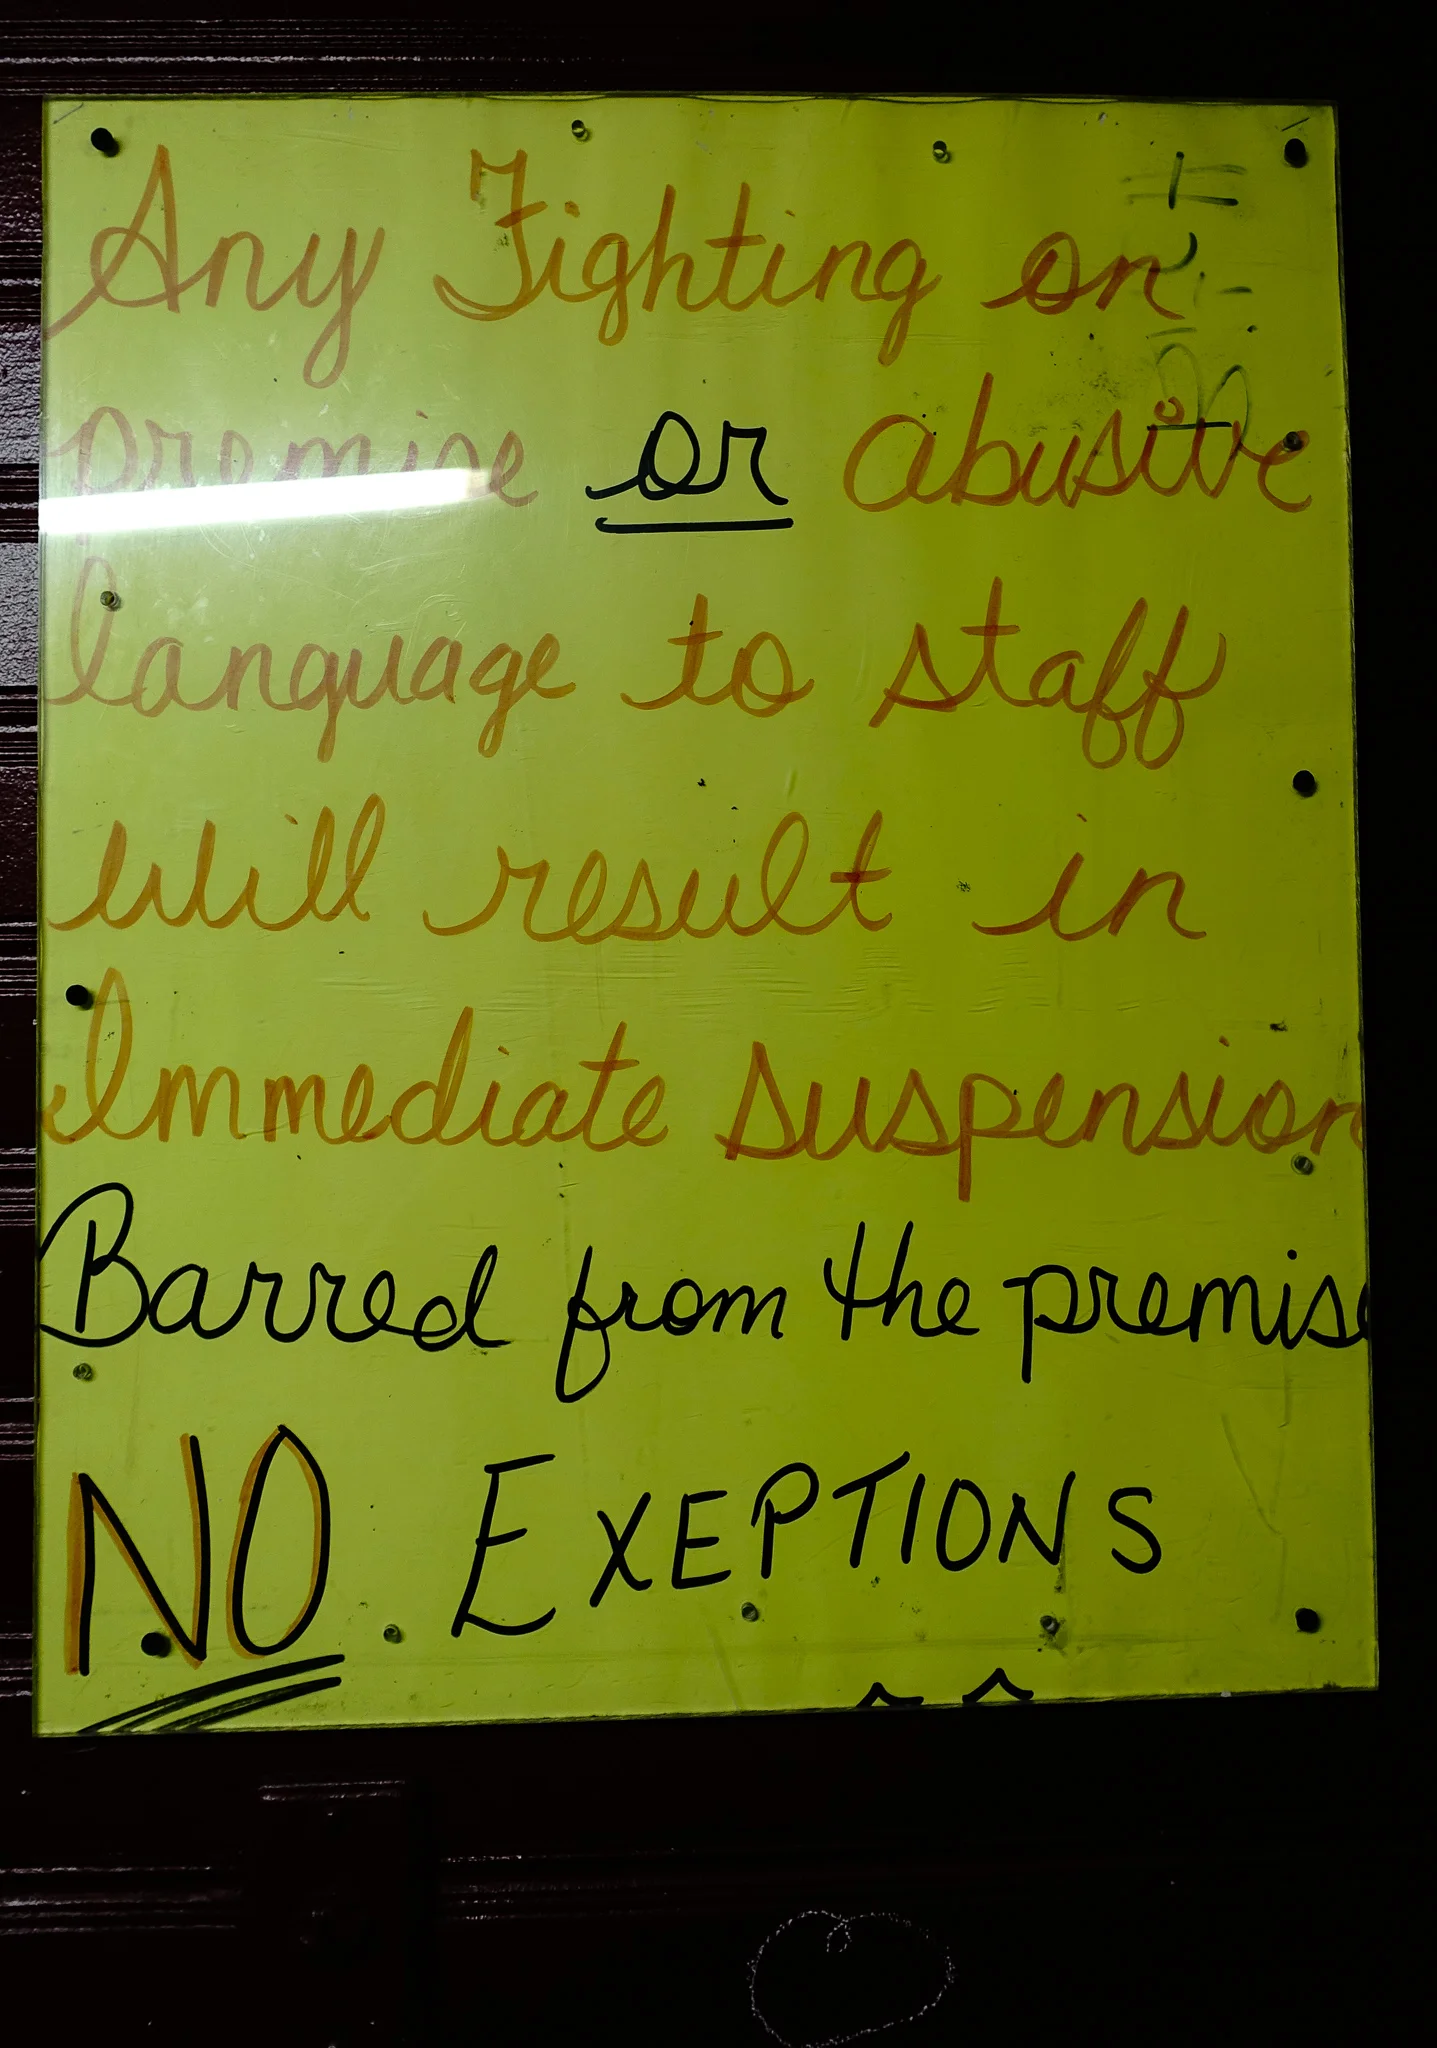 Any Fighting on
premise or abusive
language to staff
will result in
Immediate suspension
Barred from the premise
NO EXEPTIONS